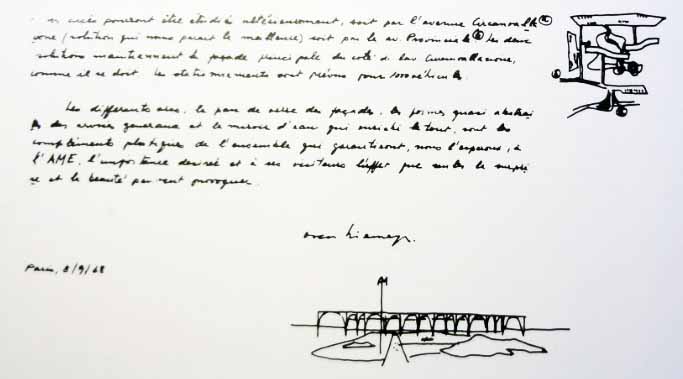 accès pourront être étudié ultérieurement, soit par l'avenue Circonvalla
zione (solution qui nous parait la meilleure) soit par la av. Provinciale. Les deux
solutions maintiennent la façade principale du coté de la av Circonvallazione,
comme il se doit. Les stationnements sont prévus pour 1000 véhicules.
Les différents arcs, le pan de verre des façades, les formes quasi abstrai
tes des arcs généraux et le miroir d'eau qui enrichi le tout, sont les
compléments plastiques de l'ensemble qui garantiront, nous l'espérons, à
l'AME, l'importance desirée et à ses visiteurs l'effet que seules la surpri
se et la beauté peuvent provoquer.
Oscar Niemeyer.
Paris, 8/9/68